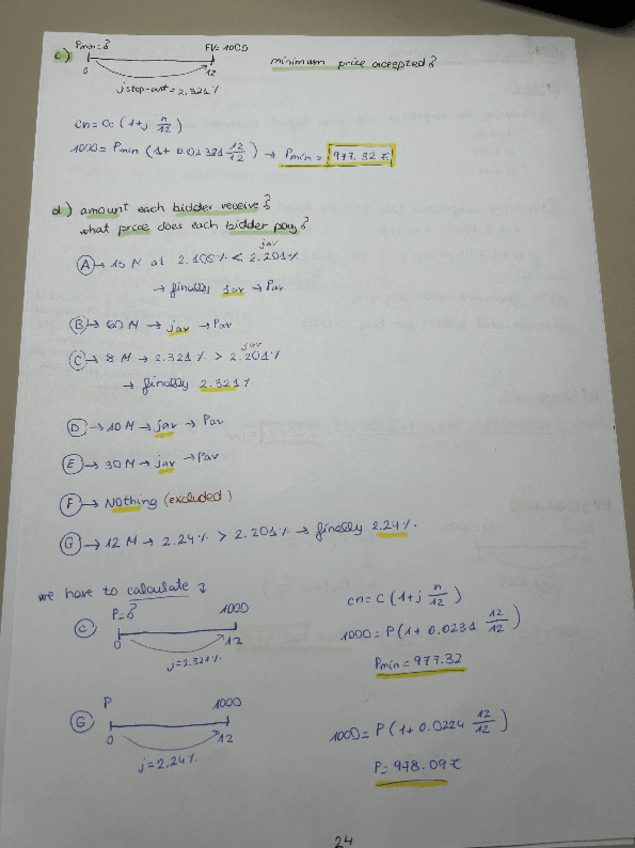 c.) Pmin=? FV=1000 minimum price accepted?
0 12
j stop-out = 2.321%
Cn = Cc (1+j n/12)
1000 = Pmin (1+ 0.02321 12/12) → Pmin = 977.32 €
d.) amount each bidder receive?
what price does each bidder pay?
jav
A → 15 M at 2.105% < 2.201%
→ finally jav → Pav
B → 60 M → jav → Pav
jav
C → 8 M → 2.321% > 2.201%
→ finally 2.321%
D → 10 M → jav → Pav
E → 30 M → jav → Pav
F → Nothing (excluded)
G → 12 M → 2.24% > 2.201% → finally 2.24%.
we have to calculate
P=? 1000 cn = c (1+j n/12)
C 0 12 1000 = P (1+ 0.0231 12/12)
j=2.321% Pmin = 977.32
P 1000
G 0 12 1000 = P (1+ 0.0224 12/12)
j=2.24% P= 978.09 €
24